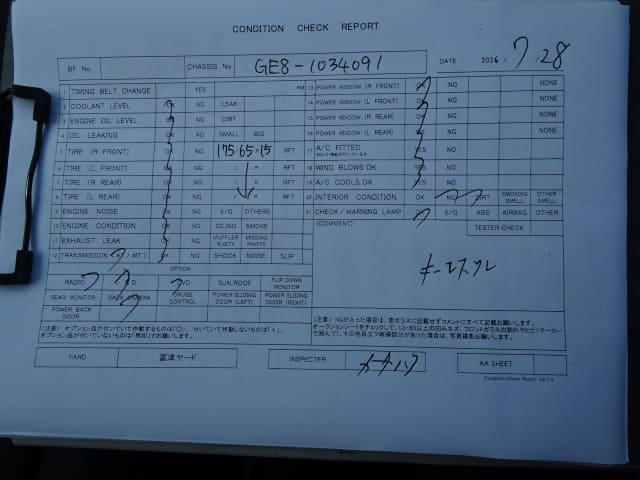 CONDITION CHECK REPORT
BF No. CHASSIS No GE8-1034091 DATE 2026 / 7 / 28
1 TIMING BELT CHANGE YES KM
2 COOLANT LEVEL OK NG LEAK
3 ENGINE OIL LEVEL OK NG DIRT
4 OIL LEAKING OK NG SMALL BIG
5 TIRE (R FRONT) OK NG 175.65.15 RFT
6 TIRE (L FRONT) OK NG / R RFT
7 TIRE (R REAR) OK NG / R RFT
8 TIRE (L REAR) OK NG / R RFT
9 ENGINE NOISE OK NG E/G OTHERS
10 ENGINE CONDITION OK NG IDLING SMOKE
11 EXHAUST LEAK OK NG MUFFLER RUSTY MISSING PARTS
12 TRANSMISSION (AT / MT) OK NG SHOCK NOISE SLIP
OPTION
RADIO CD DVD SUN ROOF FLIP DOWN MONITOR
REAR MONITOR BACK CAMERA CRUISE CONTROL POWER SLIDING DOOR (LEFT) POWER SLIDING DOOR (RIGHT)
POWER BACK DOOR
(注意) オプション品が付いていて作動するものは「○」、付いていて作動しないものは「×」、
オプション品が付いていないものは「無印」でお願いします。
13 POWER WINDOW (R FRONT) OK NG NONE
14 POWER WINDOW (L FRONT) OK NG NONE
15 POWER WINDOW (R REAR) OK NG NONE
16 POWER WINDOW (L REAR) OK NG NONE
17 A/C FITTED YES NO
18 WIND BLOWS OK YES NO
19 A/C COOLS OK YES NO
20 INTERIOR CONDITION OK NG DIRT SMOKING SMELL OTHER SMELL
21 CHECK / WARNING LAMP OK E/G ABS AIRBAG OTHER
(COMMENT) TESTER CHECK
キーレスクレ
(注意) NGが入った場合は、窓ガラスに記載せずコメントにすべて記載お願いします。
オークションシートをチェックして、U3・B3以上の凹みキズ、フロントガラスの割れやヒビ(マーカー
で囲んで)、その他目立つ破損部分があった場合は、写真撮影お願いします。
YARD 富津ヤード INSPECTER ナカハラ AA SHEET
Condition Check Report Ver.7.0